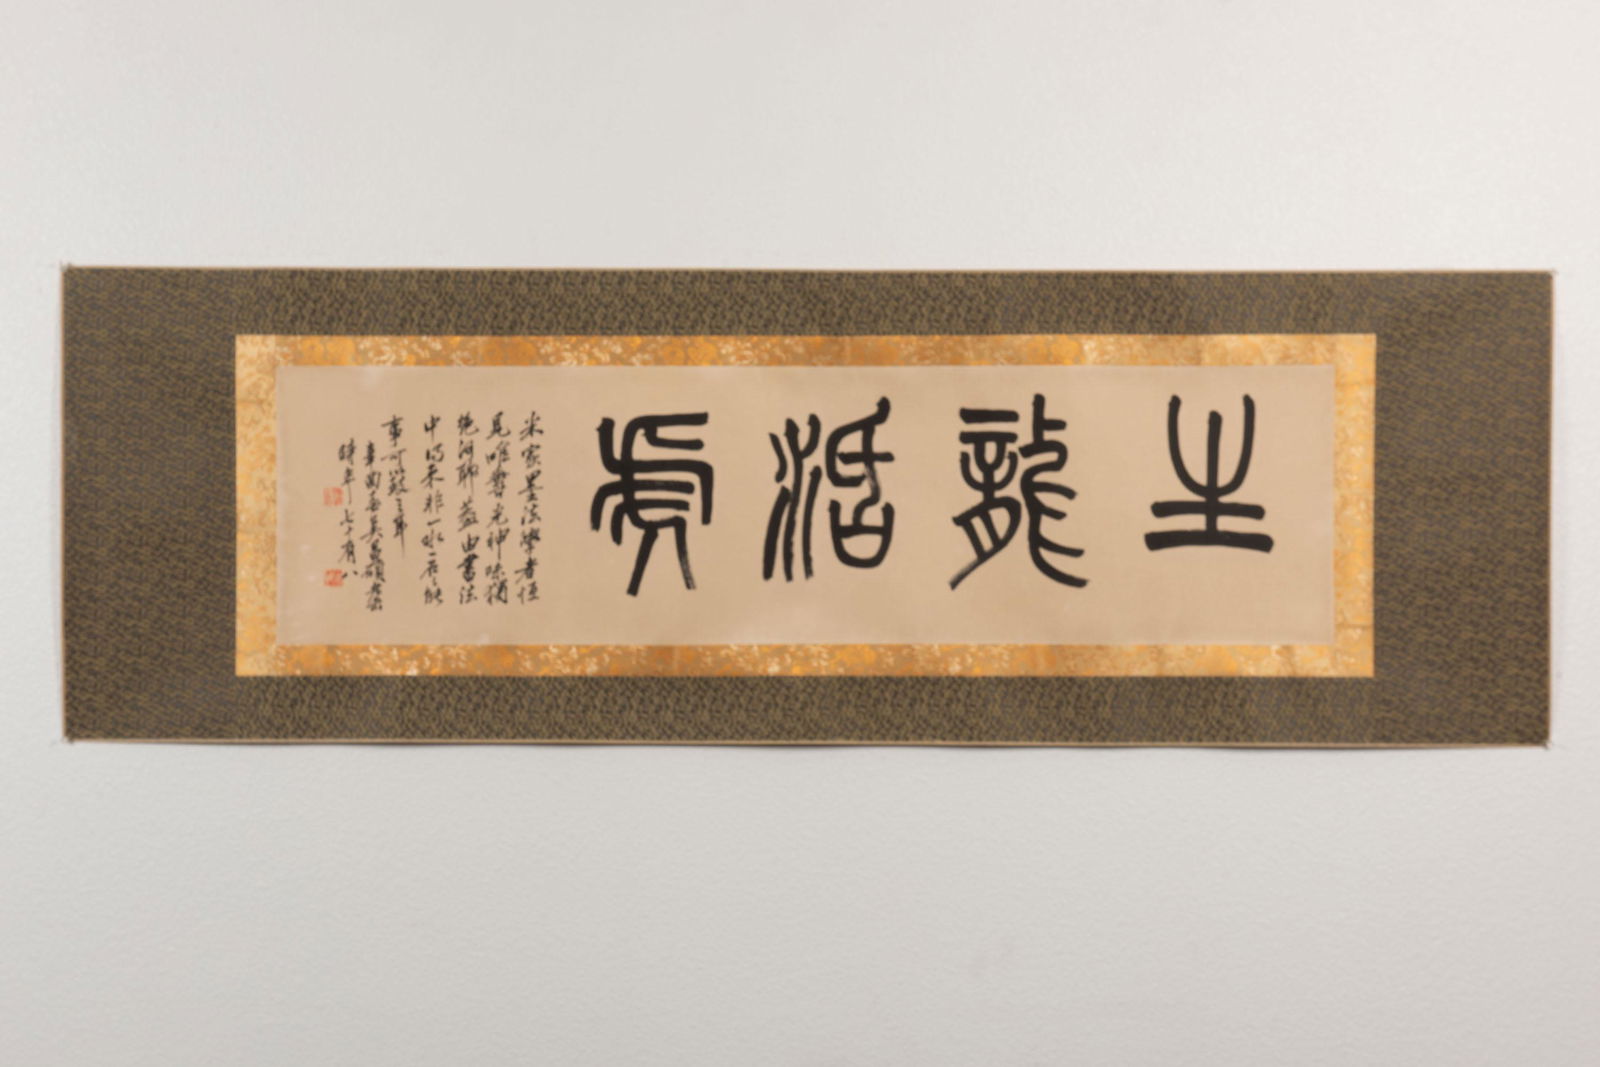 生龍活虎
米家墨法學者恒
見唯
神味獨
絕何聊蓋由書法
中得來非一水一石之能
事可
之耶
辛酉
吳昌碩老缶
時年七十有八